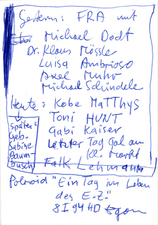 Gestern: FRA mit
Michael Dodt
Dr. Klaus Mössler
Luisa Ambrosio
Axel Muhr
Michael Schindele
Heute: Kobe MaTThys
Toni HUNT
Gabi Kaiser
Letzter Tag Gal am
Kl. Markt
Falk Lehmann
Später:
Geb.
Sabine
Baum
Duschy
Polaroid "Ein Tag im Leben
des E-2."
8I9440